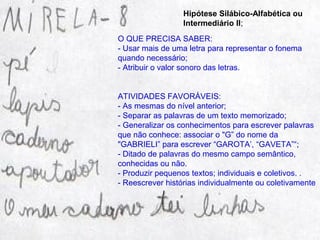 MIRELA - 8
Hipótese Silábico-Alfabética ou
Intermediário II;
O QUE PRECISA SABER:
- Usar mais de uma letra para representar o fonema
quando necessário;
- Atribuir o valor sonoro das letras.
ATIVIDADES FAVORÁVEIS:
- As mesmas do nível anterior;
- Separar as palavras de um texto memorizado;
- Generalizar os conhecimentos para escrever palavras
que não conhece: associar o "G” do nome da
"GABRIELI” para escrever “GAROTA’, “GAVETA”";
- Ditado de palavras do mesmo campo semântico,
conhecidas ou não.
- Produzir pequenos textos; individuais e coletivos. .
- Reescrever histórias individualmente ou coletivamente
pé
lapis
caderno
apoutador
O meu caderno tei linhas